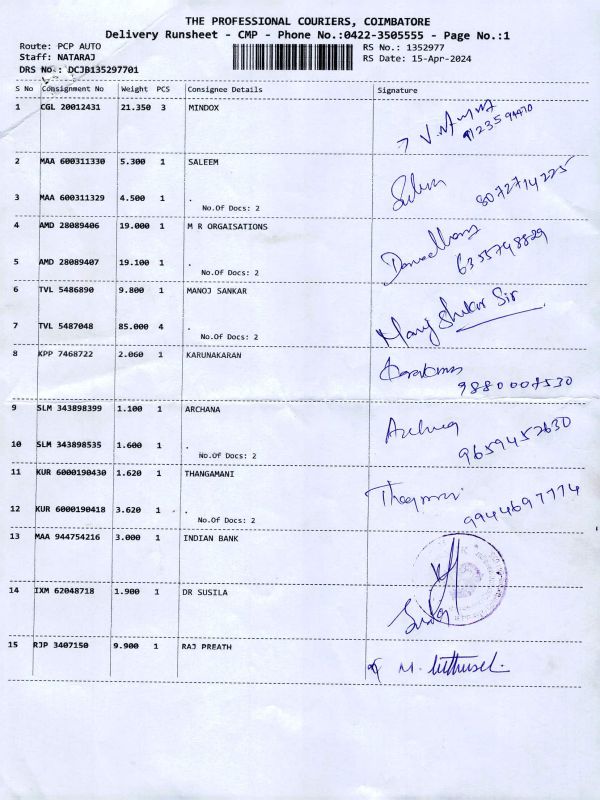 THE PROFESSIONAL COURIERS, COIMBATORE
Delivery Runsheet - CMP - Phone No.:0422-3505555 - Page No.:1
Route: PCP AUTO RS No.: 1352977
Staff: NATARAJ RS Date: 15-Apr-2024
DRS No.: DCJB135297701
S No Consignment No Weight PCS Consignee Details Signature
1 CGL 20012431 21.350 3 MINDOX
2 MAA 600311330 5.300 1 SALEEM
8072714225
3 MAA 600311329 4.500 1 .
No.Of Docs: 2
4 AMD 28089406 19.000 1 M R ORGAISATIONS
6355748829
5 AMD 28089407 19.100 1 .
No.Of Docs: 2
6 TVL 5486890 9.800 1 MANOJ SANKAR
Sir
7 TVL 5487048 85.000 4 .
No.Of Docs: 2
8 KPP 7468722 2.060 1 KARUNAKARAN
9 SLM 343898399 1.100 1 ARCHANA
Archna
9659452630
10 SLM 343898535 1.600 1 .
No.Of Docs: 2
11 KUR 6000190430 1.620 1 THANGAMANI
9944697774
12 KUR 6000190418 3.620 1 .
No.Of Docs: 2
13 MAA 944754216 3.000 1 INDIAN BANK
14 IXM 62048718 1.900 1 DR SUSILA
15 RJP 3407150 9.900 1 RAJ PREATH